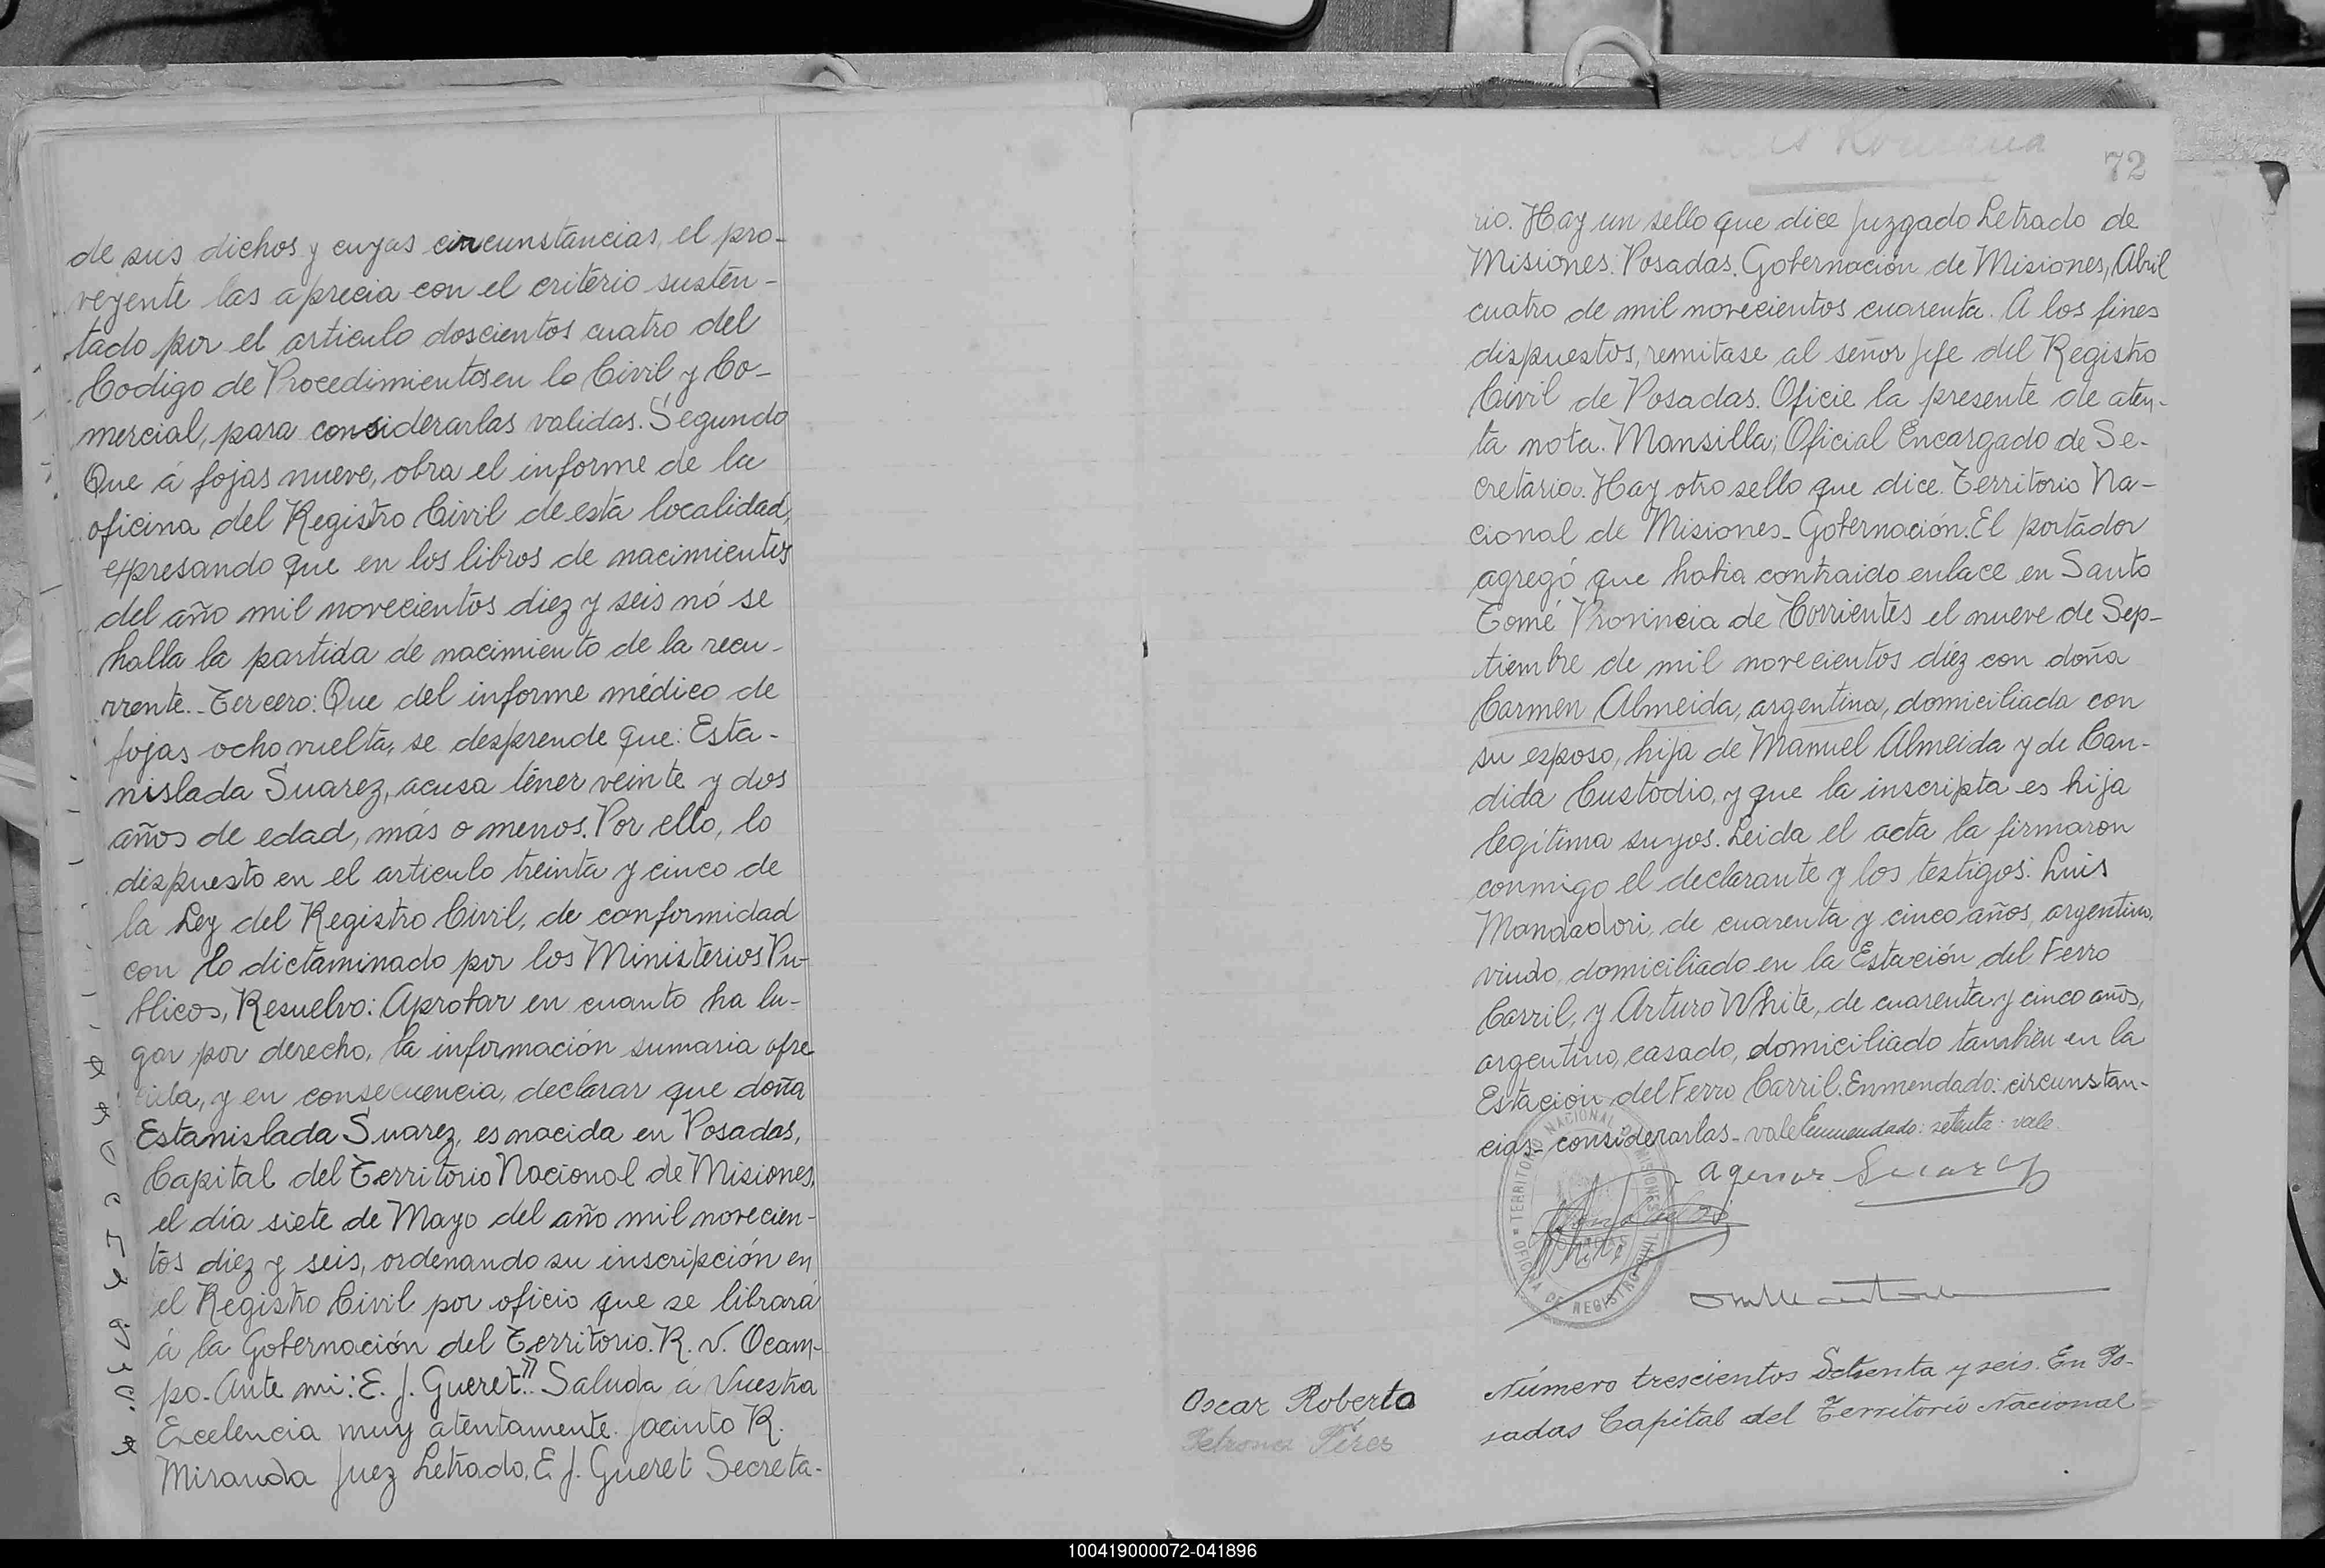 de sus dichos y cuyas circunstancias, el pro-
veyente las aprecia con el criterio susten-
tado por el articulo doscientos cuatro del
Codigo de Procedimientos en lo Civil y Co-
mercial, para considerarlas validas. Segundo
Que á fojas nueve, obra el informe de la
oficina del Registro Civil de esta localidad,
expresando que en los libros de nacimientos
del año mil novecientos diez y seis nó se
halla la partida de nacimiento de la recu-
rrente.- Tercero: Que del informe médico de
fojas ocho vuelta, se desprende que: Esta-
nislada Suarez, acusa tener veinte y dos
años de edad, más o menos. Por ello, lo
dispuesto en el articulo treinta y cinco de
la Ley del Registro Civil, de conformidad
con lo dictaminado por los Ministerios Pu-
blicos, Resuelvo: Aprobar en cuanto ha lu-
gar por derecho, la información sumaria ofre
cida, y en consecuencia, declarar que doña
Estanislada Suarez, es nacida en Posadas,
Capital del Territorio Nacional de Misiones,
el día siete de Mayo del año mil novecien-
tos diez y seis, ordenando su inscripción en
el Registro Civil por oficio que se librará
á la Gobernación del Territorio. R. V. Ocam-
po. Ante mi: E. J. Gueret". Saluda á Vuestra
Excelencia muy atentamente. Jacinto R.
Miranda Juez Letrado, E. J. Gueret Secreta-
Romana
72
rio. Hay un sello que dice Juzgado Letrado de
Misiones. Posadas, Gobernación de Misiones, Abril
cuatro de mil novecientos cuarenta. A los fines
dispuestos, remitase al señor Jefe del Registro
Civil de Posadas. Oficie la presente de aten-
ta nota. Mansilla, Oficial Encargado de Se-
cretaria. Hay otro sello que dice. Territorio Na-
cional de Misiones- Gobernación. El portador
agregó que habia contraido enlace en Santo
Tomé Provincia de Corrientes el nueve de Sep-
tiembre de mil novecientos diéz con doña
Carmen Almeida, argentina, domiciliada con
su esposo, hija de Manuel Almeida y de Can-
dida Custodio, y que la inscripta es hija
legítima suyos. Leida el acta la firmaron
conmigo el declarante y los testigos: Luis
Mandadori, de cuarenta y cinco años, argentino,
viudo, domiciliado en la Estación del Ferro
Carril, y Arturo White, de cuarenta y cinco años,
argentino, casado, domiciliado también en la
Estación del Ferro Carril. Enmendado: circunstan-
cias- considerarlas- vale Enmendado: setenta: vale
Agenor Suarez
TERRITORIO NACIONAL DE MISIONES
OFICINA DE REGISTRO CIVIL
Oscar Roberto
Petrona Pires
Número trescientos Setenta y seis. En Po-
sadas Capital del Territorio Nacional
100419000072-041896